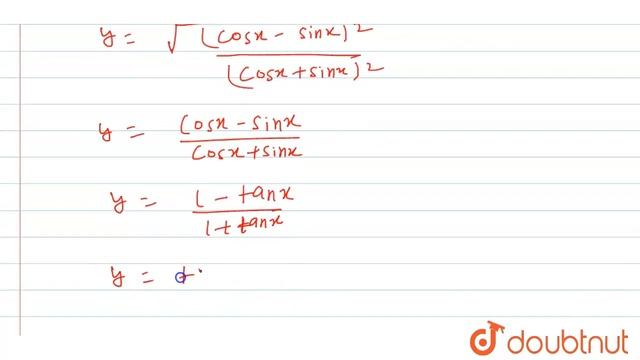 y = √ (cosx - sinx)²
(cosx + sinx)²
y = cosx - sinx
cosx + sinx
y = 1 - tanx
1 + tanx
y =
doubtnut